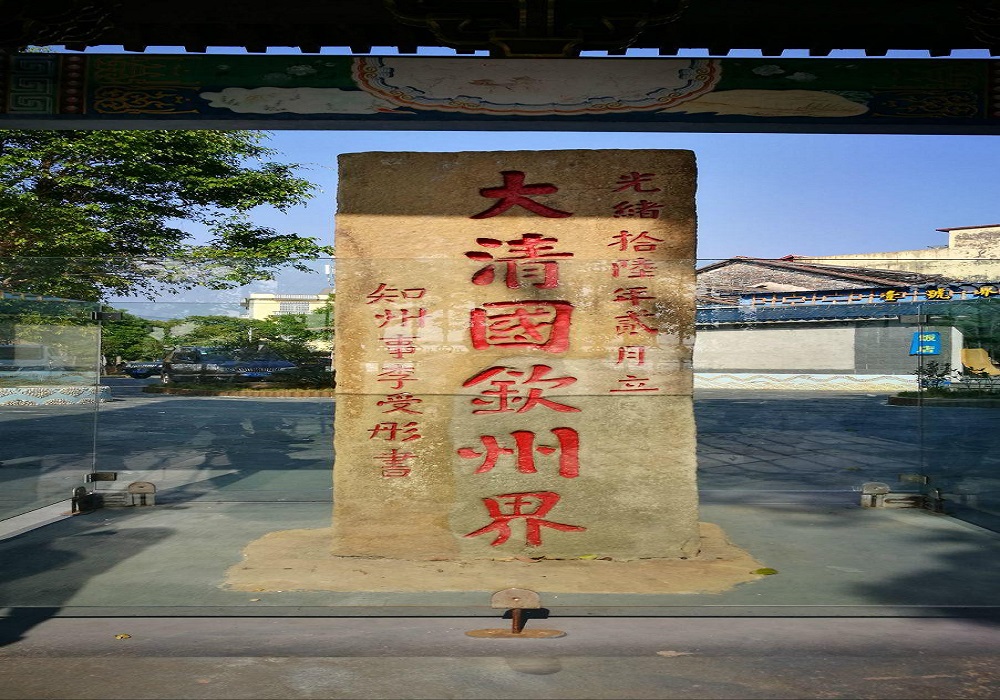 光緒拾陸年貳月立
大清國欽州界
知州事李受彤書
飯店